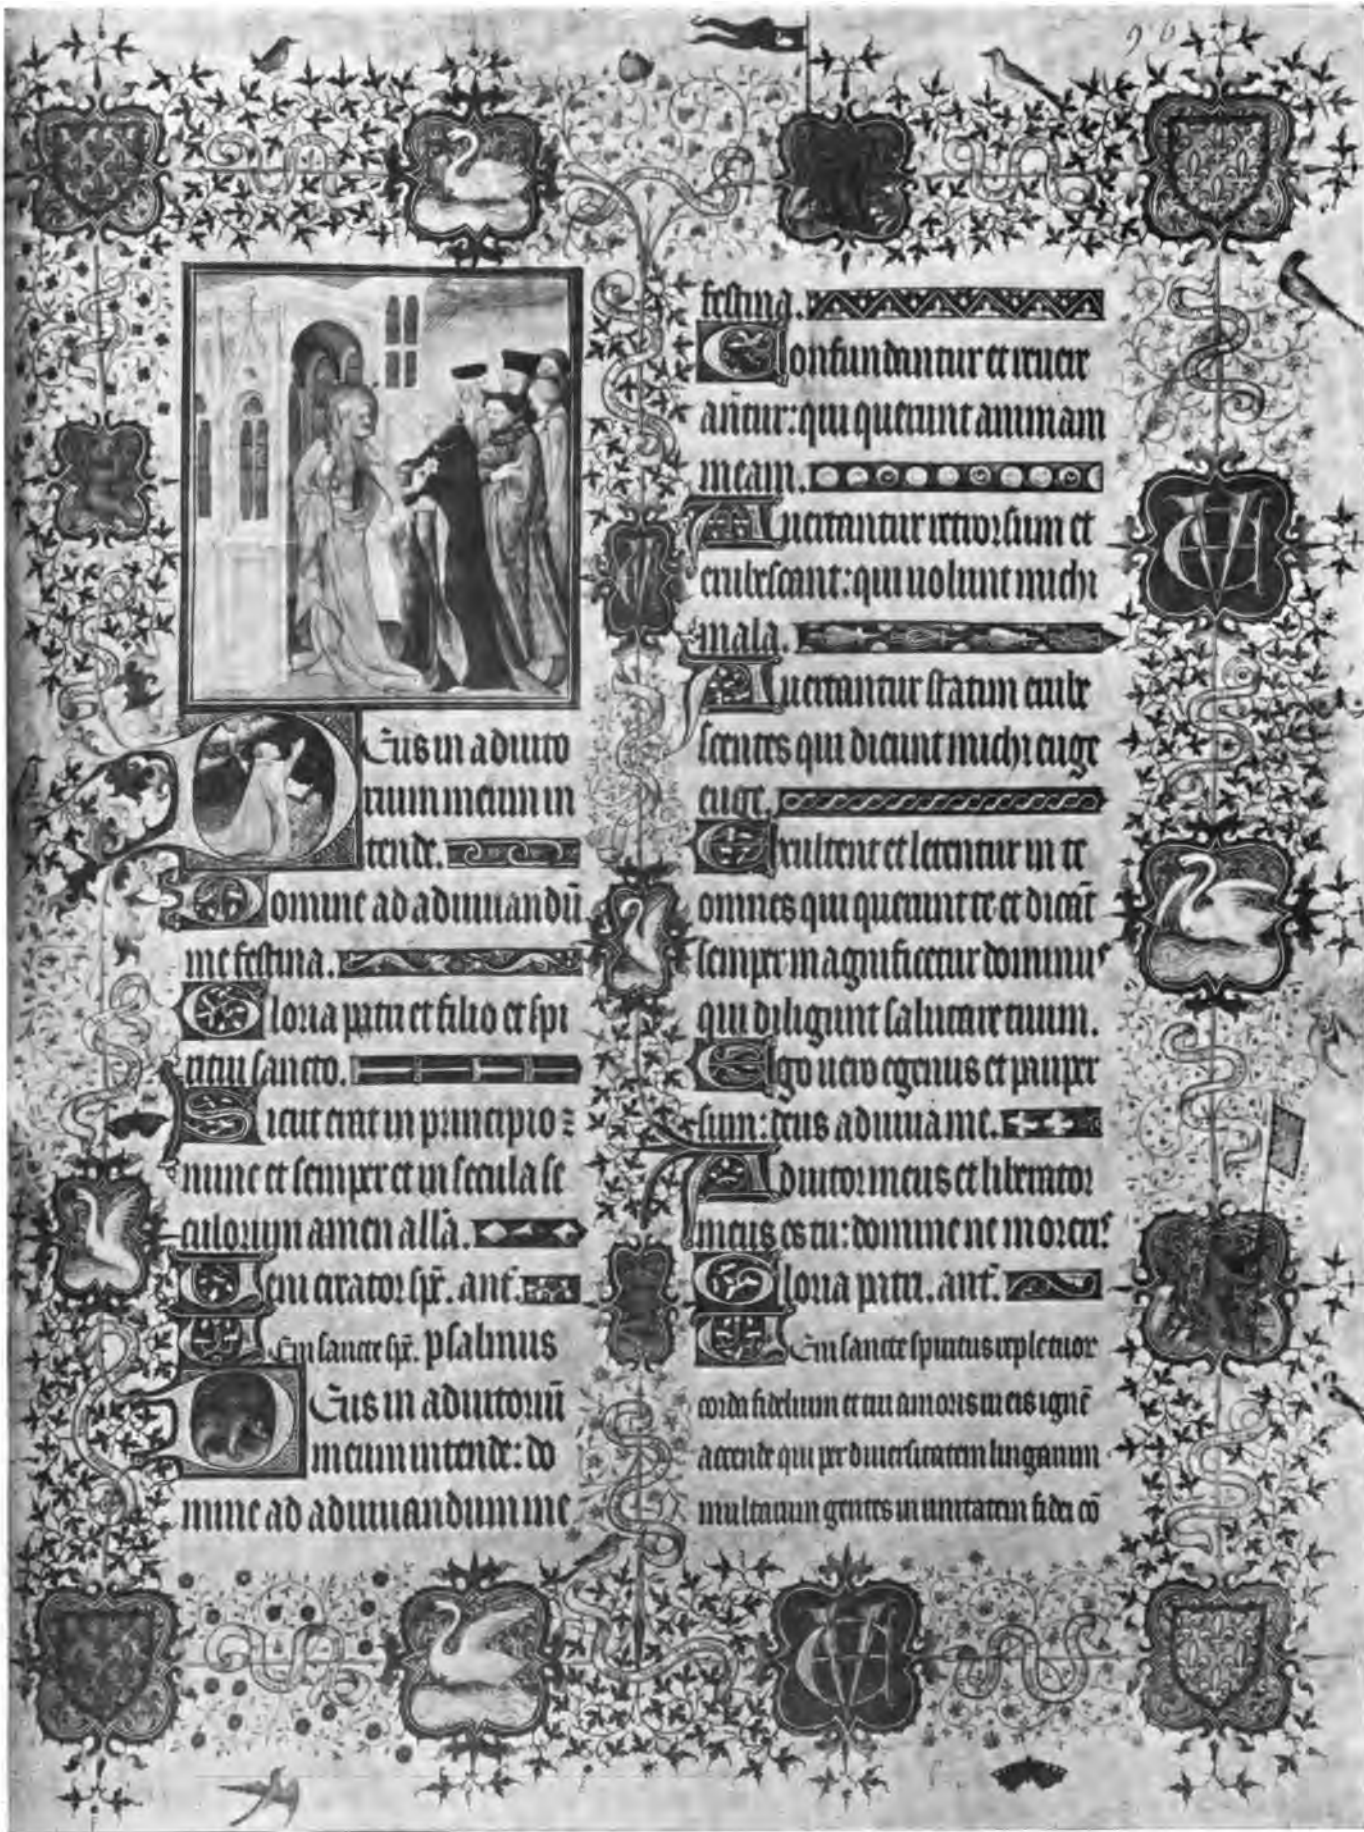 96
Deus in adiuto
rium meum in
tende.
Domine ad adiuuandū
me festina.
Gloria patri et filio et spi
ritui sancto.
Sicut erat in principio ⁊
nunc et semper et in secula se
culorum amen all'a.
Ueni creator sp̄c. ant'.
Ueni sancte sp̄c. psalmus
Deus in adiutoriū
meum intende: do
mine ad adiuuandum me
festina.
Confundantur et reuere
antur: qui querunt animam
meam.
Auertantur retrorsum et
erubescant: qui uolunt michi
mala.
Auertantur statim erube
scentes qui dicunt michi euge
euge.
Exultent et letentur in te
omnes qui querunt te et dicāt
semper magnificetur dominus
qui diligunt salutare tuum.
Ego uero egenus et pauper
sum: deus adiuua me.
Adiutor meus et liberator
meus es tu: domine ne moreris
Gloria patri. ant'.
Ueni sancte spiritus reple tuor
corda fidelium et tui amoris in eis ignē
accende qui per diuersitatem linguarum
multarum gentes in unitatem fidei cō